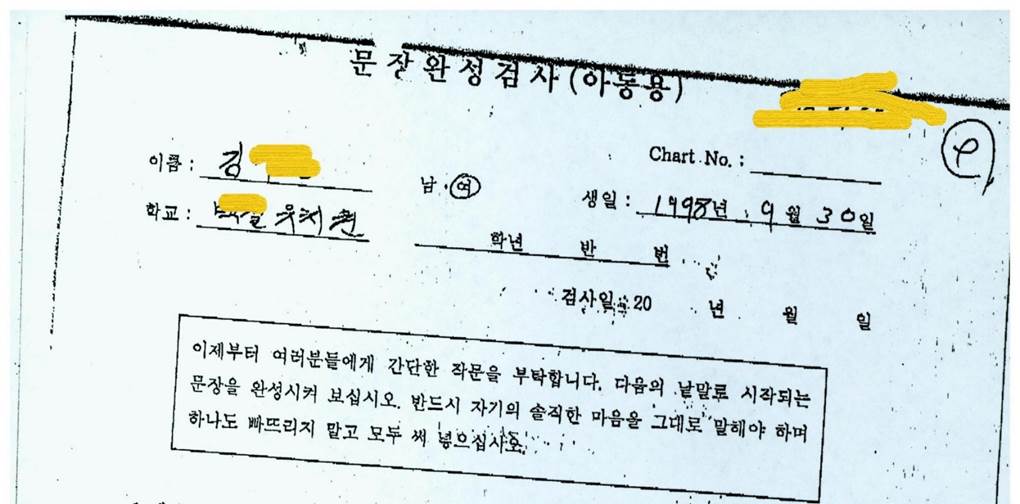 문장완성검사(아동용)
Chart No. :
이름 : 김
남 · 여
생일 : 1998년 9월 30일
학교 : 유치원
학년 반 번
검사일 : 20 년 월 일
이제부터 여러분들에게 간단한 작문을 부탁합니다. 다음의 낱말로 시작되는
문장을 완성시켜 보십시오. 반드시 자기의 솔직한 마음을 그대로 말해야 하며
하나도 빠뜨리지 말고 모두 써 넣으십시오.